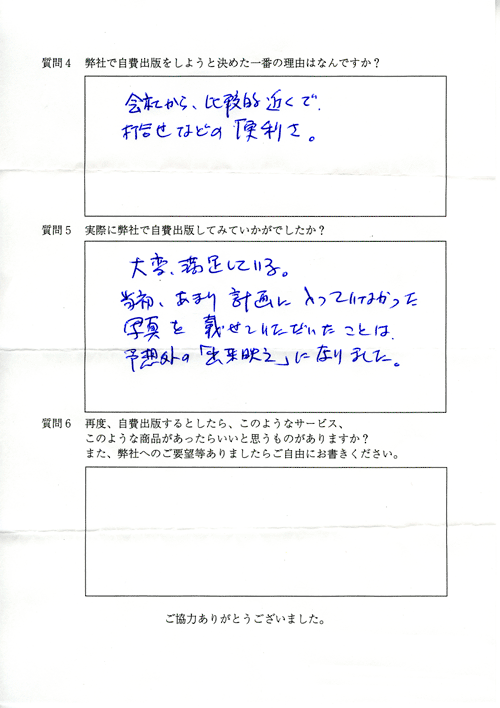 質問4 弊社で自費出版をしようと決めた一番の理由はなんですか?
会社から、比較的近くで、
打合せなどの便利さ。
質問5 実際に弊社で自費出版してみていかがでしたか?
大変、満足している。
当初、あまり計画に入っていなかった
写真を載せていただいたことは、
予想外の「出来映え」になりました。
質問6 再度、自費出版するとしたら、このようなサービス、
このような商品があったらいいと思うものがありますか?
また、弊社へのご要望等ありましたらご自由にお書きください。
ご協力ありがとうございました。